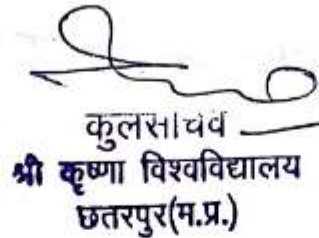 कुलसचिव
श्री कृष्णा विश्वविद्यालय
छतरपुर(म.प्र.)